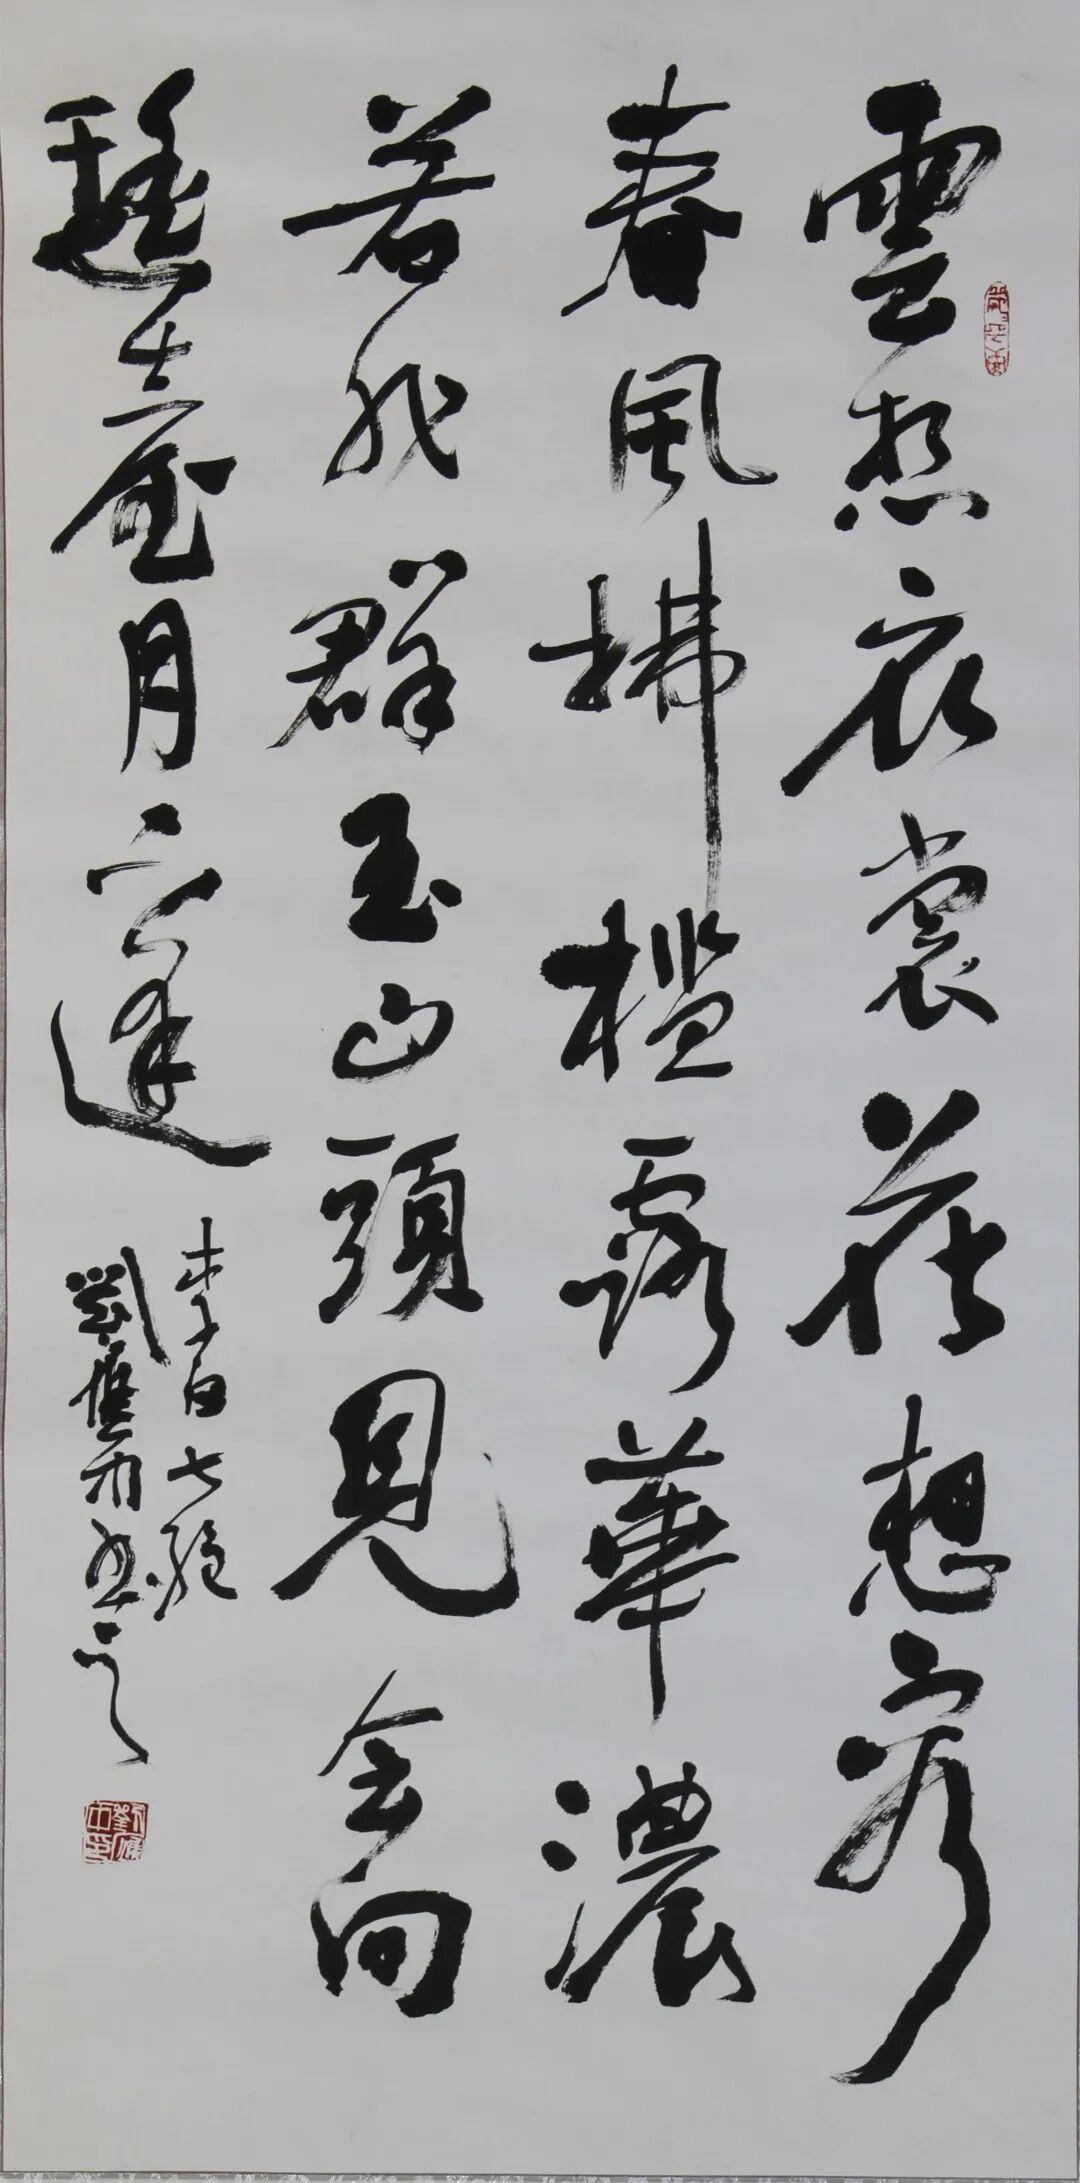 雲想衣裳花想容
春風拂檻露華濃
若非群玉山頭見會向
瑤臺月下逢
李白七絕
劉書之